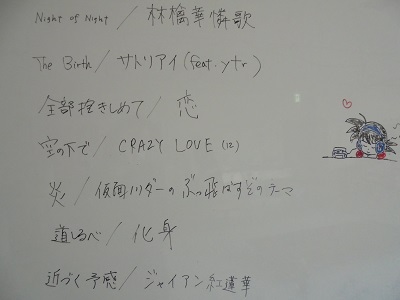 Night of Night / 林檎華憐歌
The Birth / サトリアイ (feat. ytr)
全部抱きしめて / 恋
空の下で / CRAZY LOVE (12)
炎 / 仮面川ダーのぶっ飛ばすぞのテーマ
道しるべ / 化身
近づく予感 / ジャイアン紅蓮華